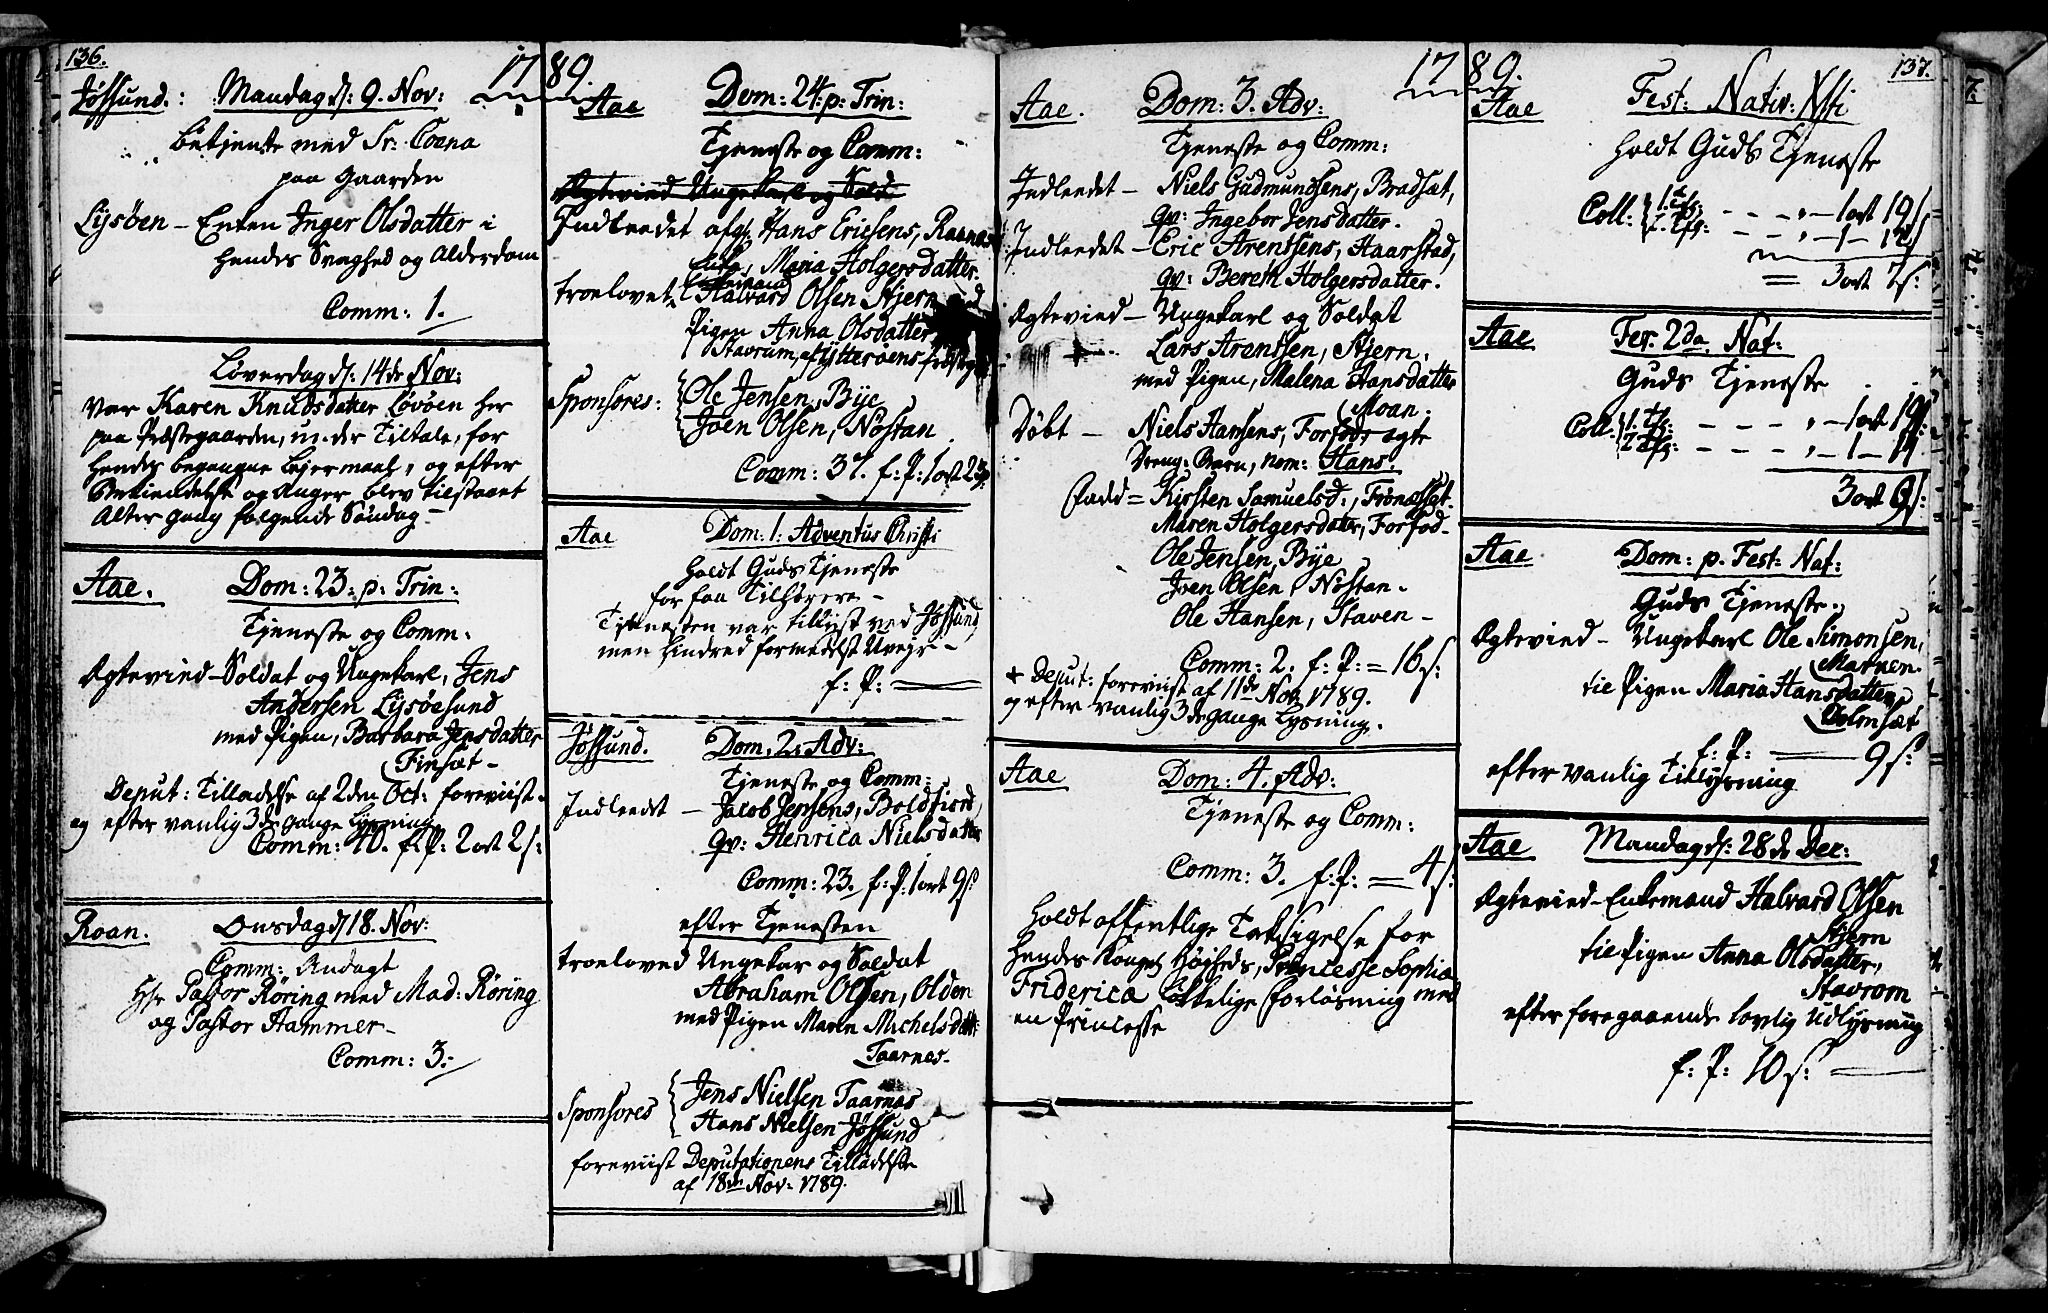 136.
1789.
Jøssund: Mandag d: 9. Nov:
betjente med Sr: Coena
paa gaarden
Lysøen – Enken Inger Olsdatter i
hendes Svaghed og Alderdom
Comm: 1.
Løverdag d: 14de Nov:
var Karen Knudsdatter Løvøen her
paa Præstegaarden, under Tiltale, for
hendes begangne Lejermaal, og efter
Bekiendelse og Anger blev tilstædt
Alter gang følgende Søndag –
Aae. Dom: 23. p: Trin:
Tjeneste og Comm:
Ægtevied – Soldat og Ungekarl, Jens
Andersen Lysøesund
med Pigen, Barbara Jensdatter
Finsæt –
Deput: Tilladelse af 2den Oct: foreviist
og efter vanlig 3de gange Lysning
Comm: 40. f: P: 2 ort 2 s:
Roan. Onsdag d 18. Nov:
Comm: Andagt
Hr Pastor Røring med Mad: Røring
og Pastor Hammer –
Comm: 3:
Aae Dom: 24. p: Trin:
Tjeneste og Comm:
Ægteviet Ungekarl og Sold
Indleedet afg: Hans Ericsens, Raanæs
Enke, Maria Holgersdatter.
troelovet Enkemand
Halvard Olsen Stjern
Pigen Anna Olsdatter
Stavrum, af Ytterøens
Sponsores: Ole Jensen, Bye
Joen Olsen, Nøstan
Comm: 37. f: P: 1 ort 23
Aae Dom: 1: Adventus Christi
holdt Guds Tjeneste
for faa Tilhørere –
Tjenesten var tillyst ved Jøssund
men hindred formedelst Uvejr –
f: P: —
Jøssund. Dom. 2. Adv:
Tjeneste og Comm:
Indleedt – Jacob Jensens, Boldfiord,
qv: Henrica Nielsdatter
Comm: 23. f: P: 1 ort 9 s:
efter Tjenesten
troeloved Ungekar og Soldat
Abraham Olsen, Olden
med Pigen Maren Michelsdatt:
Taarnes –
Sponsores Jens Nielsen Taarnes
Hans Nielsen Jøssund
foreviist Deputationens Tilladelse
af 18de Nov: 1789.
1789.
137.
Aae. Dom: 3. Adv:
Tjeneste og Comm:
Indleedet – Niels Gudmundsens, Bradsæt,
qv: Ingebor Jensdatter.
Indleedet – Eric Arentsens, Haarstad,
qv: Bereth Holgersdatter.
Ægteviet – Ungekarl og Soldat
+ Lars Arentsen, Stjern,
med Pigen, Malena Hansdatter
Moan.
Døbt – Niels Hansens, Forfod ægte
Drenge Barn, nom: Hans.
Fadd = Kirsten Samuelsd:, Frønesset.
Maren Holgersdatter, Forfod –
Ole Jensen, Bye
Joen Olsen, Nøstan –
Ole Hansen, Staven –
Comm: 2. f: P: = 16 s:
+ Deput: foreviist af 11de Nov 1789.
og efter vanlig 3de gange Lysning.
Aae Dom: 4. Adv:
Tjeneste og Comm:
Comm: 3. f: P: = 4 s:
holdt offentlige Taksigelse for
hendes Kongel Højheds, Princesse Sophia
Friderica løkkelige forløsning med
en Princesse
Aae Fest: Nativ: Xsti
holdt Guds Tjeneste
Coll: 1. Tfl: – – – „ – 1 ort 19 s
2. Tfl: – – „ – 1 – 12 s
= 3 ort 7 s:
Aae Fer. 2da. Nat:
Guds Tjeneste
Coll: 1. Tfl: – – – „ – 1 ort 19 s
2 Tfl: – – – „ – 1 – 14
3 ort 9 s:
Aae Dom: p. Fest: Nat:
Guds Tjeneste.
Ægtevied – Ungekarl Ole Simonsen,
Marnen.
til Pigen Maria Hansdatter,
Dolmsæt
f: P: — 9 s:
efter vanlig Tillysning
Aae Mandag d: 28de Dec:
Ægteviet – Enkemand Halvard Olsen
Stjern
til Pigen Anna Olsdatter,
Stavrom
efter foregaaende lovlig Udlysning
f: P: 10 s: —